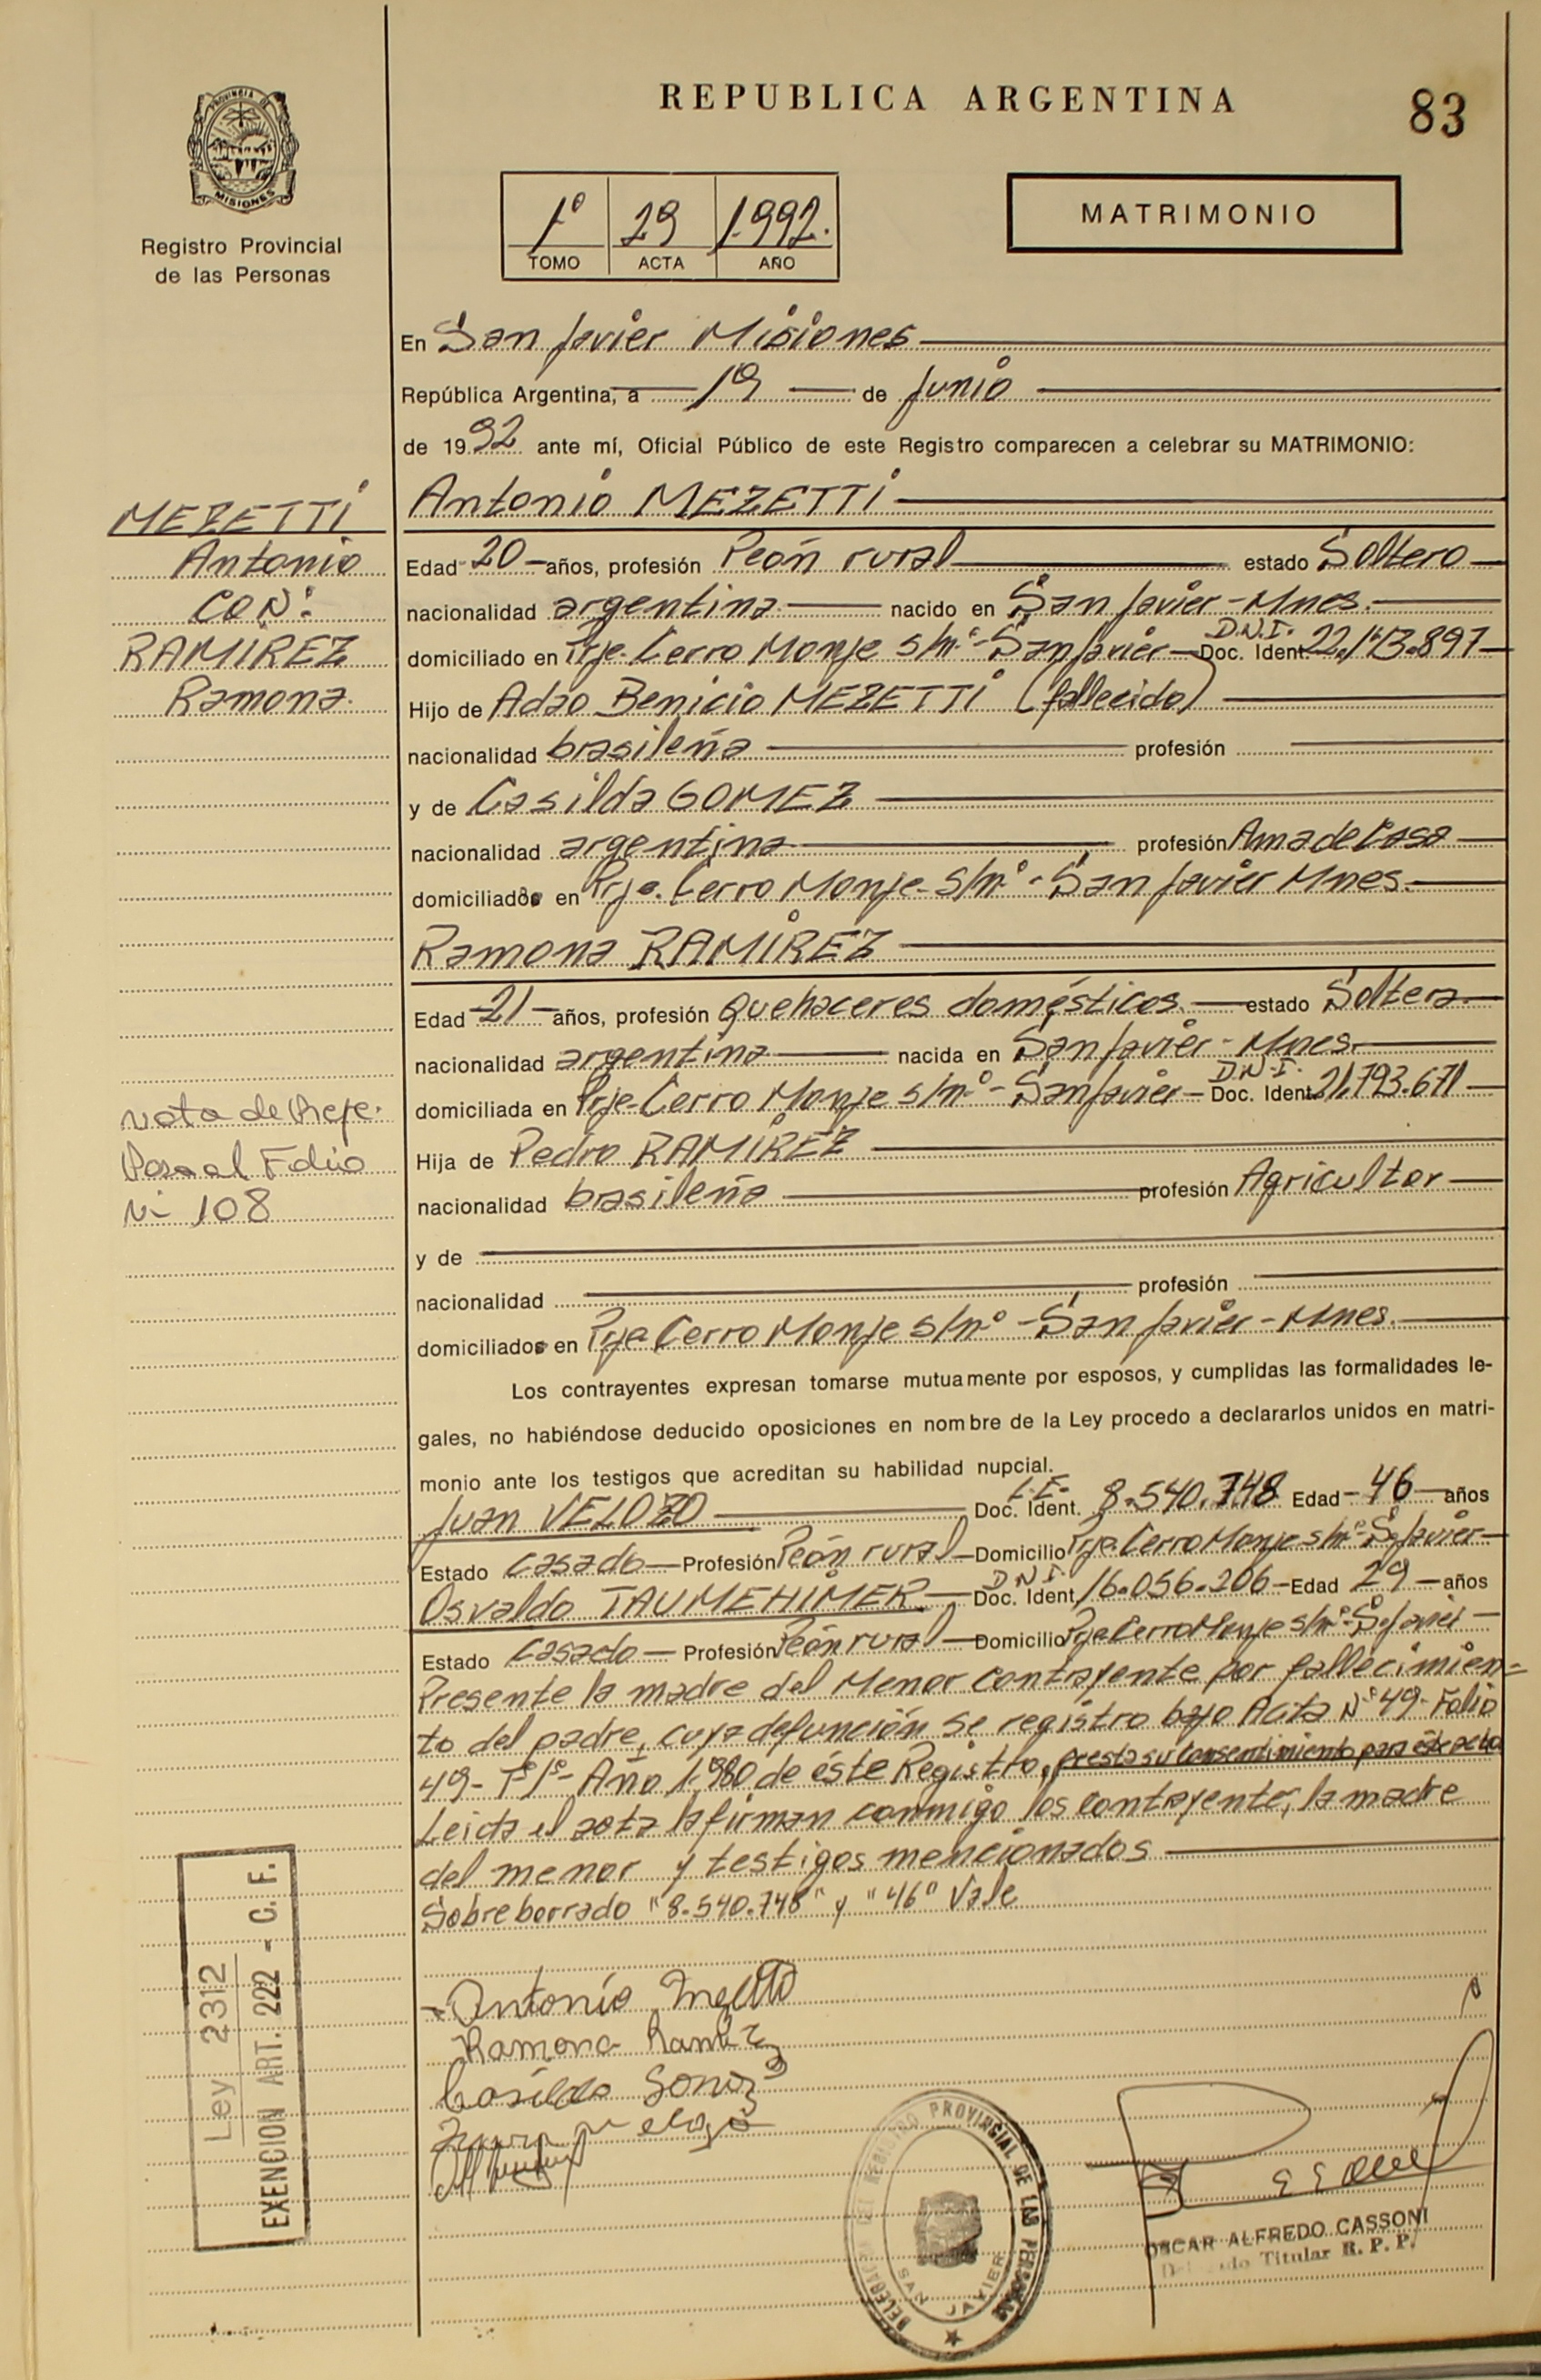 REPUBLICA ARGENTINA
83
PROVINCIA DE
MISIONES
Registro Provincial
de las Personas
1º 29 1.992.
TOMO ACTA AÑO
MATRIMONIO
En San Javier Misiones
República Argentina, a 19 de Junio
de 1992 ante mí, Oficial Público de este Registro comparecen a celebrar su MATRIMONIO:
MEZETTI
Antonio
CON:
RAMIREZ
Ramona.
Antonio MEZETTI
Edad 20 años, profesión Peón rural estado Soltero
nacionalidad argentina nacido en San Javier - Mnes.
domiciliado en Prje. Cerro Monje s/nº - San Javier D.N.I. Doc. Ident. 22.113.897
Hijo de Adao Benicio MEZETTI (fallecido)
nacionalidad brasileña profesión
y de Casilda GOMEZ
nacionalidad argentina profesión Ama de Casa
domiciliados en Prje. Cerro Monje - S/nº - San Javier Mnes.
Ramona RAMIREZ
Edad 21 años, profesión quehaceres domésticos. estado Soltera
nacionalidad argentina nacida en San Javier - Mnes.
domiciliada en Prje. Cerro Monje s/nº - San Javier D.N.I. Doc. Ident. 21.793.671
Hija de Pedro RAMIREZ
nacionalidad brasileña profesión Agricultor
y de
nacionalidad profesión
domiciliados en Prje Cerro Monje s/nº - San Javier - Mnes.
nota de Refe.
Pasa al Folio
Nº 108
Los contrayentes expresan tomarse mutuamente por esposos, y cumplidas las formalidades le-
gales, no habiéndose deducido oposiciones en nombre de la Ley procedo a declararlos unidos en matri-
monio ante los testigos que acreditan su habilidad nupcial.
Juan VELOZO L.E. Doc. Ident. 8.540.748 Edad 46 años
Estado casado Profesión Peón rural Domicilio Prje. Cerro Monje s/nº - S. Javier
Osvaldo TAUMEHIMER D.N.I. Doc. Ident. 16.056.206 Edad 29 años
Estado casado Profesión Peón rural Domicilio Prje Cerro Monje s/nº - S. Javier
Presente la madre del Menor contrayente por fallecimien=
to del padre, cuya defunción se registro bajo Acta Nº 49 - Folio
49 - Tº 1º - Año 1.980 de éste Registro, presta su consentimiento para éste acto
Leida el acta la firman conmigo los contrayente, la madre
del menor y testigos mencionados
Sobreborrado "8.540.748" y "46" Vale
Ley 2312
EXENCION ART. 222 - C. F.
Antonio
Ramona Ramirez
Casilda
DELEGACION DEL REGISTRO PROVINCIAL DE LAS PERSONAS
SAN JAVIER
OSCAR ALFREDO CASSONI
Delegado Titular R. P. P.